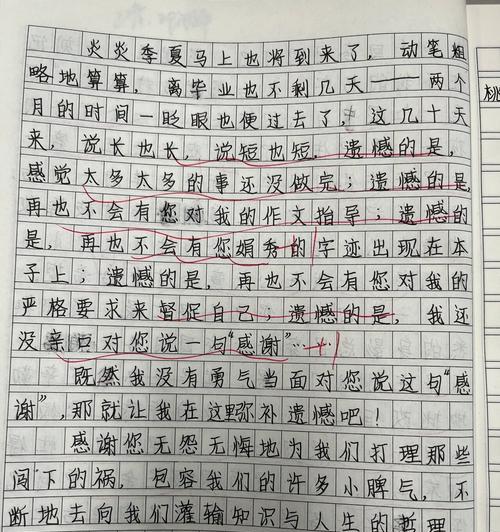 炎炎季夏马上也将到来了，动笔粗
略地算算，离毕业也不剩几天——两个
月的时间一眨眼也便过去了，这几十天
来，说长也长，说短也短，遗憾的是，
感觉太多太多的事还没做完；遗憾的是，
再也不会有您对我的作文指导；遗憾的
是，再也不会有您娟秀的字迹出现在本
子上；遗憾的是，再也不会有您对我的
严格要求来督促自己；遗憾的是，我还
没亲口对您说一句“感谢”……
既然我没有勇气当面对您说这句“感
谢”，那就让我在这里弥补遗憾吧！
感谢您无怨无悔地为我们打理那些
闯下的祸，包容我们的许多小脾气，不
断地去向我们灌输知识与人生的哲理
桃